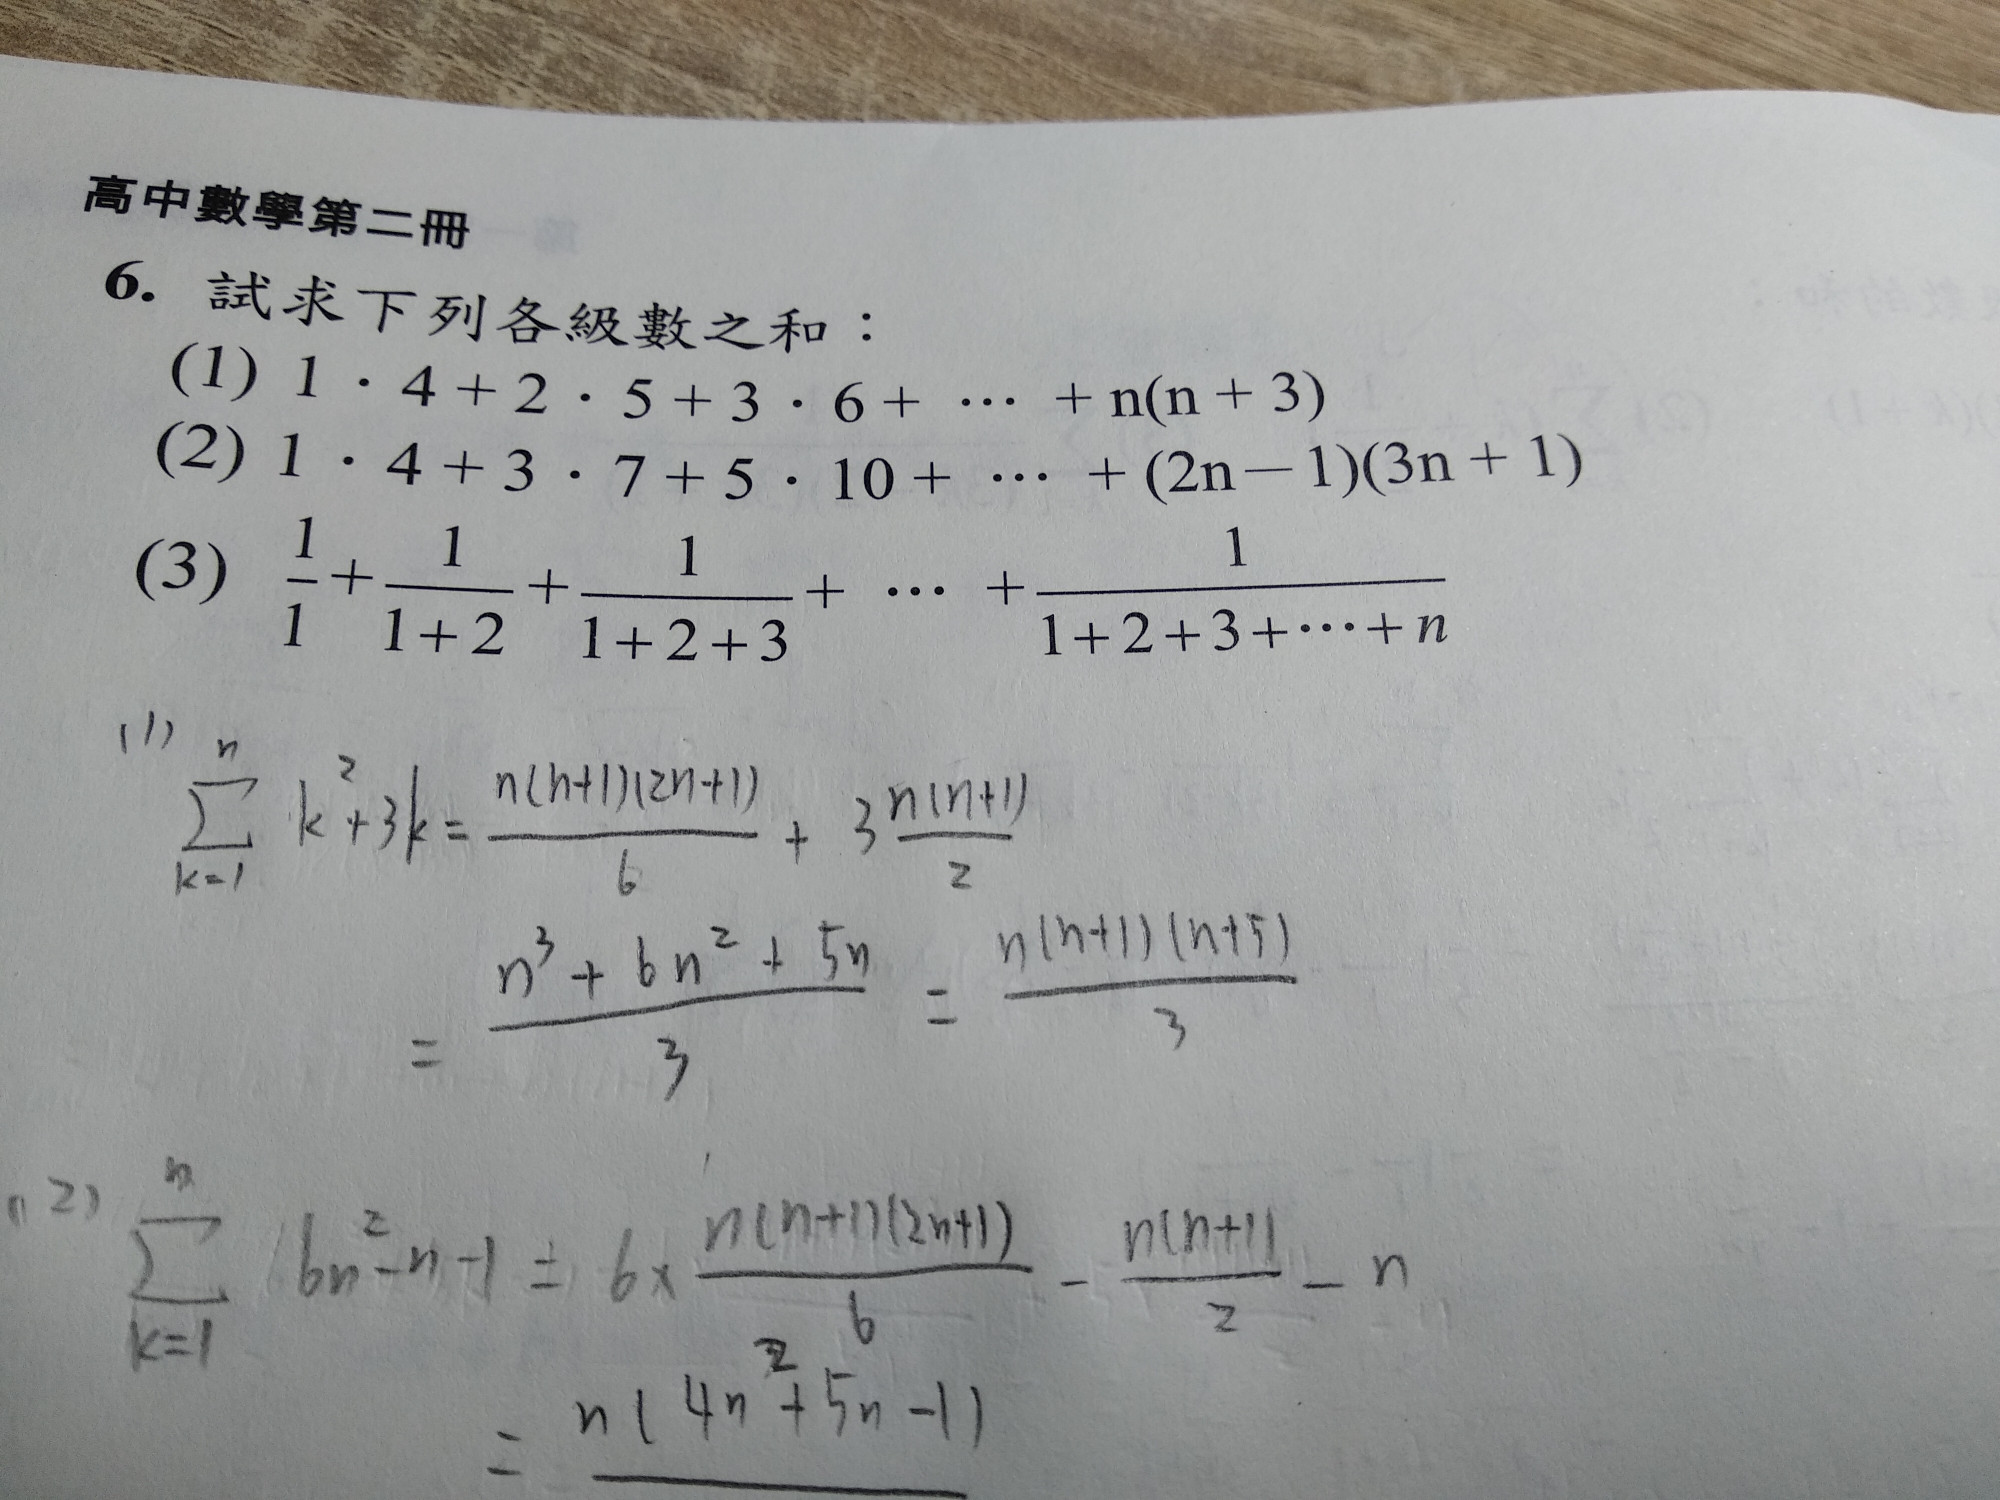 高中數學第二冊
6. 試求下列各級數之和：
(1) 1 · 4 + 2 · 5 + 3 · 6 + ⋯ + n(n + 3)
(2) 1 · 4 + 3 · 7 + 5 · 10 + ⋯ + (2n − 1)(3n + 1)
(3) 1/1 + 1/(1+2) + 1/(1+2+3) + ⋯ + 1/(1+2+3+⋯+n)
(1) ∑_{k=1}^{n} k² + 3k = n(n+1)(2n+1)/6 + 3 n(n+1)/2
= (n³ + 6n² + 5n)/3 = n(n+1)(n+5)/3
(2) ∑_{k=1}^{n} 6n² − n − 1 = 6 × n(n+1)(2n+1)/6 − n(n+1)/2 − n
= n(4n² + 5n − 1)